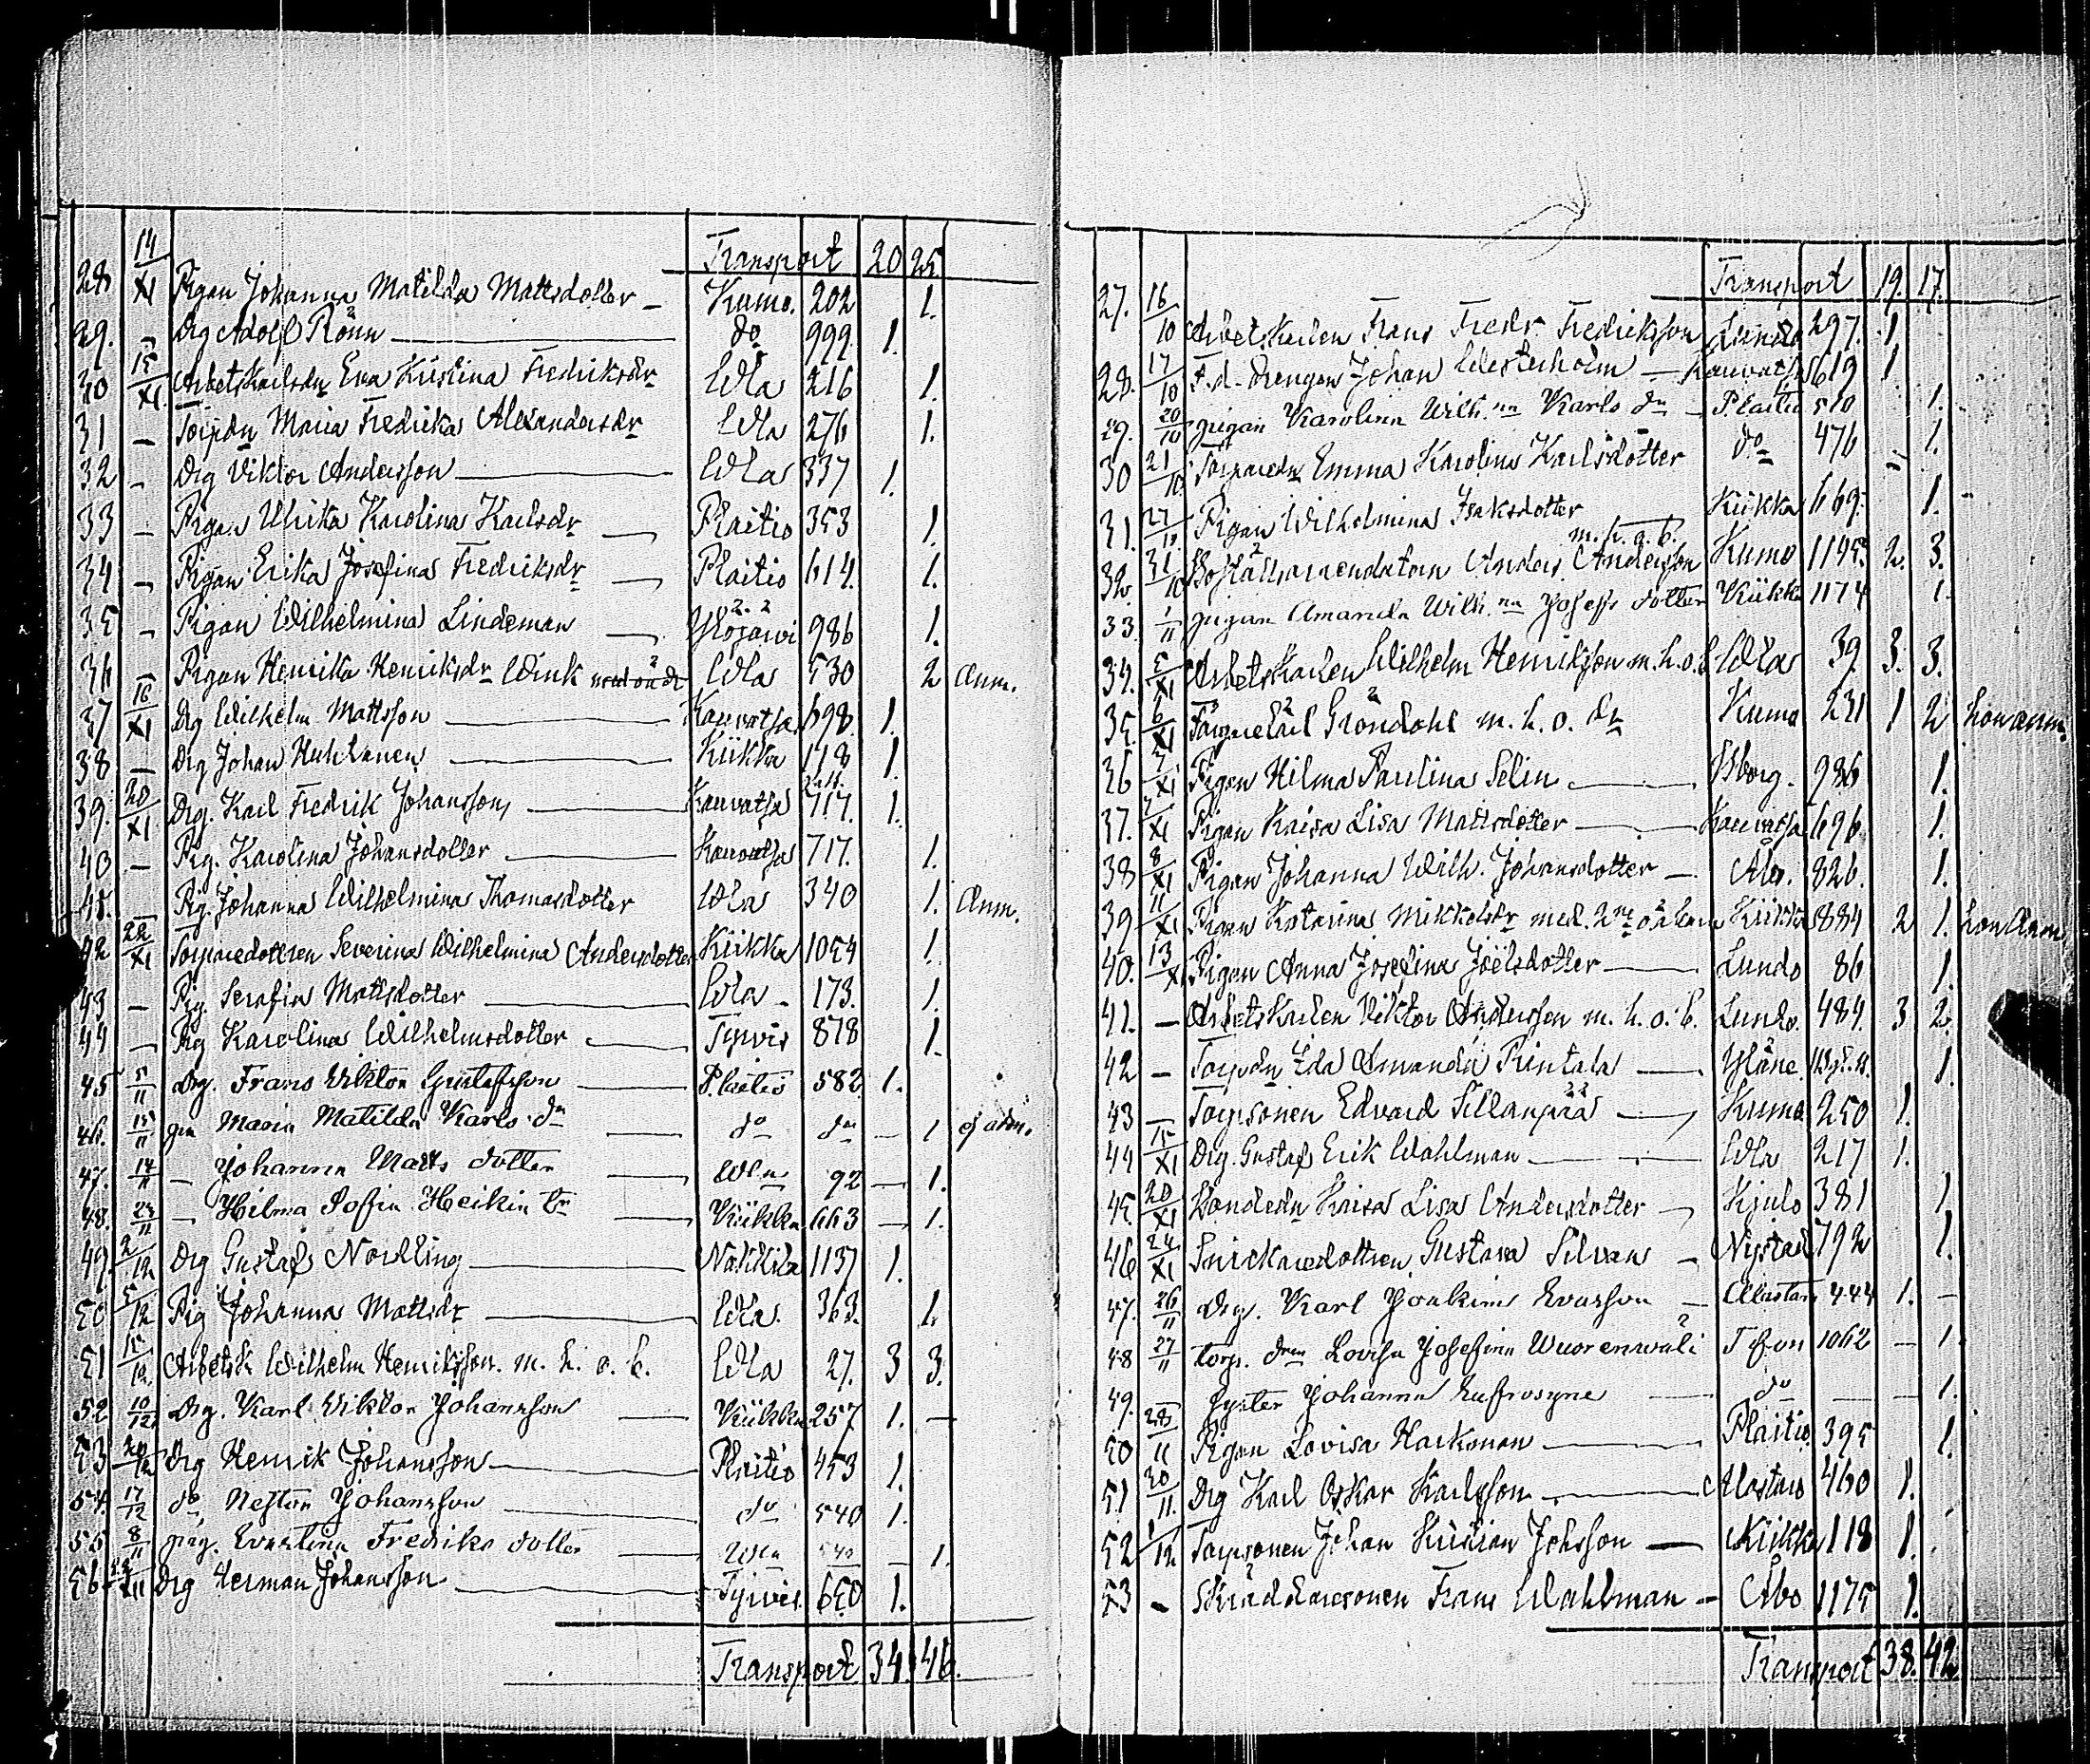 Transport 20 25.
28 14/XI Pigan Johanna Matilda Mattsdotter Kumo. 202 1.
29. – Drg Adolf Rönn do 999. 1.
30 15/XI Arbetskarlsdr Eva Kristina Fredriksdr Wla 216 1.
31 – Torpdr Maria Fredrika Alexandersdr Wla 276 1.
32 – Drg Viktor Andersson Wla 337 1.
33 – Pigan Ulrika Karolina Karlsdr Plaitio 353 1.
34 – Pigan Erika Josefina Fredriksdr Plaitio 614. 1.
35 – Pigan Wilhelmina Lindeman 986 1.
36 – Pigan Henrika Henriksdr Wink Wla 530 2 Anm.
37 16/XI Drg Wilhelm Mattsson Kauvatsa 698. 1.
38 – Drg Johan Huhtanen Kiikka 118 1.
39. 20/XI Drg. Karl Fredrik Johansson Kauvatsa 717. 1.
40 – Pig. Karolina Johansdotter Kauvatsa 717. 1.
41. – Pig. Johanna Wilhelmina Thomasdotter Wla 340 1. Anm.
42 22/XI Torparedottren Severina Wilhelmina Andersdotter Kiikka 1054 1.
43 – Pig. Serafia Mattsdotter Wla 173. 1.
44 – Pig Karolina Wilhelmsdotter Tyrvis 878 1.
45 5/11 Drg. Frans Viktor Gustafsson Plaitio 582 1.
46. 15/11 gn Maria Matilda Karls dr do do – 1 ej adm.
47. 14/11 – Johanna Matts dotter Wla 92 – 1.
48. 23/11 – Hilma Sofia Heikin tr Kiikka 663 – 1.
49. 2/12 Drg Gustaf Nordling Nakkila 1137 1.
50 5/12 Pig Johanna Mattsdr Wla. 363. 1.
51 15/12 Arbetsk Wilhelm Henriksson. m. h. o. b. Wla 27. 3 3.
52 10/12 Drg. Karl Viktor Johansson Kiikka 257 1. –
53 20/12 Drg Henrik Johansson Plaitio 453 1.
54. 17/12 do Nestor Johansson do 540 1.
55 8/11 pig. Evastina Fredriks dotter – 1.
56 Drg Herman Johansson Tyrvis. 650 1.
Transport 34. 46.
Transport 19. 17.
27. 16/10 Arbetskarlen Frans Fredr. Fredriksson Lundo 297. 1
28. 17/10 F.d. drengen Johan Westerholm Kauvatsa 619 1
29. 20/10 pigan Karolina Wilh.na Karls dr Plaitio 510 1.
30 21/10 Torparedr Emma Karolina Karlsdotter do 476 – 1.
31. 27/10 Pigan Wilhelmina Isaksdotter Kiikka 669. 1.
32 31/10 Boställsarrendatorn Anders Andersson m. h. o. b. Kumo 1195. 2. 3.
33. 1/11 pigan Amanda Wilh.na Josefs dotter Kiikka 1174 1.
34. 5/XI Arbetskarlen Wilhelm Henriksson m. h. o. b Wla 39. 3. 3.
35. 6/XI Gröndahl m. h. o. dr Kumo 231 1 2 hon anm.
36 7/XI Pigan Hilma Paulina Selin Bborg. 986 1.
37. 7/XI Pigan Kaisa Lisa Mattsdotter Kauvatsa 696 1.
38 8/XI Pigan Johanna Wilh. Johansdotter Åbo. 826. 1.
39 11/XI Pigan Katarina Mikkelsdr med 2ne Kiikka 884 2 1. hon Anm
40. 13/XI Pigan Anna Josefina Joëlsdotter Lundo 86 1.
41. – Arbetskarlen Viktor Andersson m. h. o. b. Lundo. 484. 3 2.
42 – Torpdr Ida Amanda Rintala Yläne. 1.
43 – Torpsonen Edvard Sillanpää Kumo 250 1.
44 15/XI Drg. Gustaf Erik Wahlman Wla 217 1.
45. 20/XI Bondedr Kaisa Lisa Andersdotter Kjulo 381 1
46 24/XI Snickaredottren Gustava Silvan Nystad 792 1.
47. 26/11 Drg. Karl Joakim Evasson Alastaro 444 1. –
48 27/11 torp. drn Lovisa Josefina Wuorenwäli 1062 – 1
49. – syster Johanna Eufrosyne do – – 1.
50 28/11 Pigan Lovisa Harkonen Plaitio. 395 1.
51 30/11. Drg Karl Oskar Karlsson Alastaro 460 1.
52 1/12 Torpsonen Johan Kristian Johsson Kiikka 118 1.
53 – Skräddaresonen Frans Wahlman Åbo 1175 1.
Transport 38. 42